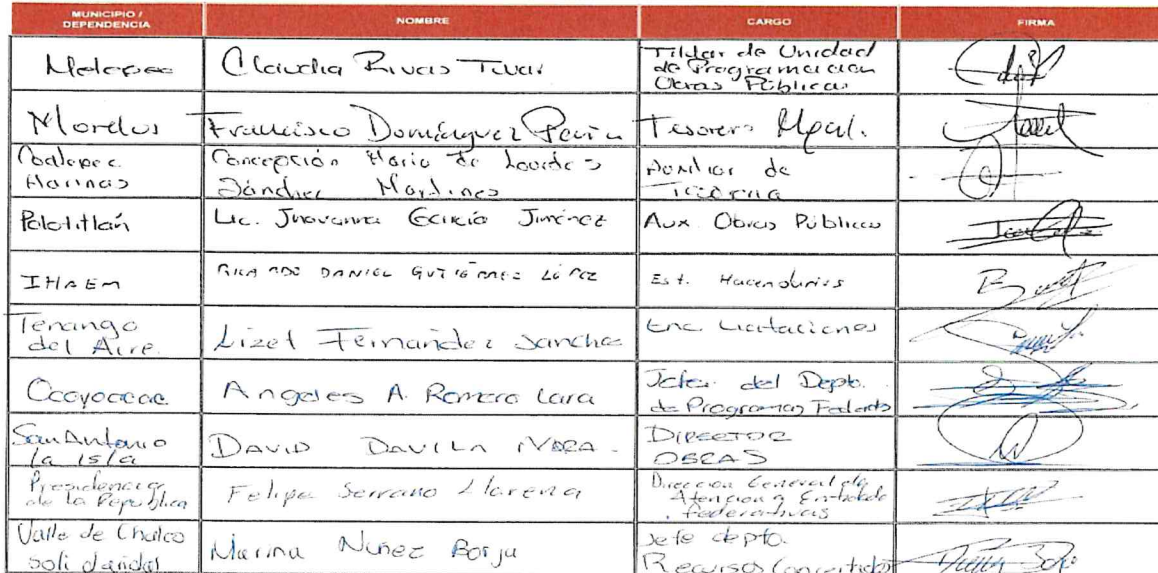 MUNICIPIO / DEPENDENCIA NOMBRE CARGO FIRMA
Metepec Claudia Rivas Tovar Titular de Unidad
de Programacion
Obras Públicas
Morelos Francisco Domínguez Tesorero Mpal.
Coatepec Concepción Maria de Lourdes Auxiliar de
Harinas Sánchez Martinez Tesoreria
Polotitlán Lic. Jhovanna García Jiménez Aux Obras Públicas
IHAEM RICARDO DANIEL GUTIÉRREZ LÓPEZ Est. Hacendarios
Tenango
del Aire Lizet Fernandez Sanche Enc. Licitaciones
Ocoyoacac Angeles A. Romero Lara Jefa del Depto.
de Programas
San Antonio DAVID DAVILA DIRECTOR
la isla OBRAS
Presidencia Felipe Serrano Llarena Direccion General de
de la Republica Atencion a Entidade
federativas
Valle de Chalco Marina Nuñez Borja Jefe depto.
Recursos